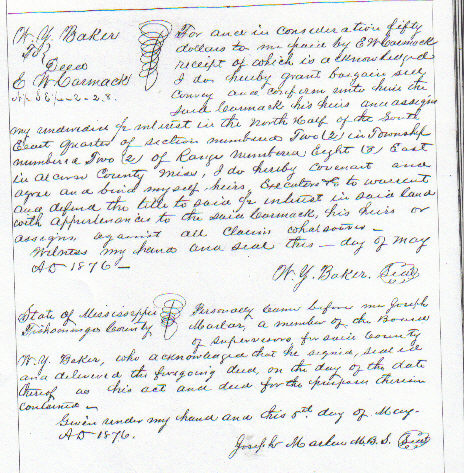 W. Y. Baker
To
Deed
E W Carmack
N½ S E¼ 2-2-8.
For and in consideration fifty
dollars to me paid by E W Carmack
receipt of which is acknowledged
I do hereby grant bargain sell
Convey and confirm unto him the
said Carmack his heirs and assigns
my undivided interest in the North Half of the South
East quarter of section numbered Two (2) in Township
numbered Two (2) of Range numbered Eight (8) East
in Alcorn County Miss, I do hereby covenant and
agree and bind myself heirs, Executors &c to warrent
and defend the title to said interest in said land
with appurtenances to the said Carmack, his heirs or
assigns against all claims whatsoever –
Witness my hand and seal this – day of May
AD 1876 –
W. Y. Baker. Seal
State of Mississippi
Tishomingo County
Personally came before me Joseph
Marlar, a member of the Board
of Supervisors, for said County
W. Y. Baker, who acknowledged that he signed, sealed
and delivered the foregoing deed, on the day of the date
thereof as his act and deed for the purposes therein
contained –
Given under my hand and this 8th day of May –
AD 1876.
Joseph Marlar M.B.S. Seal